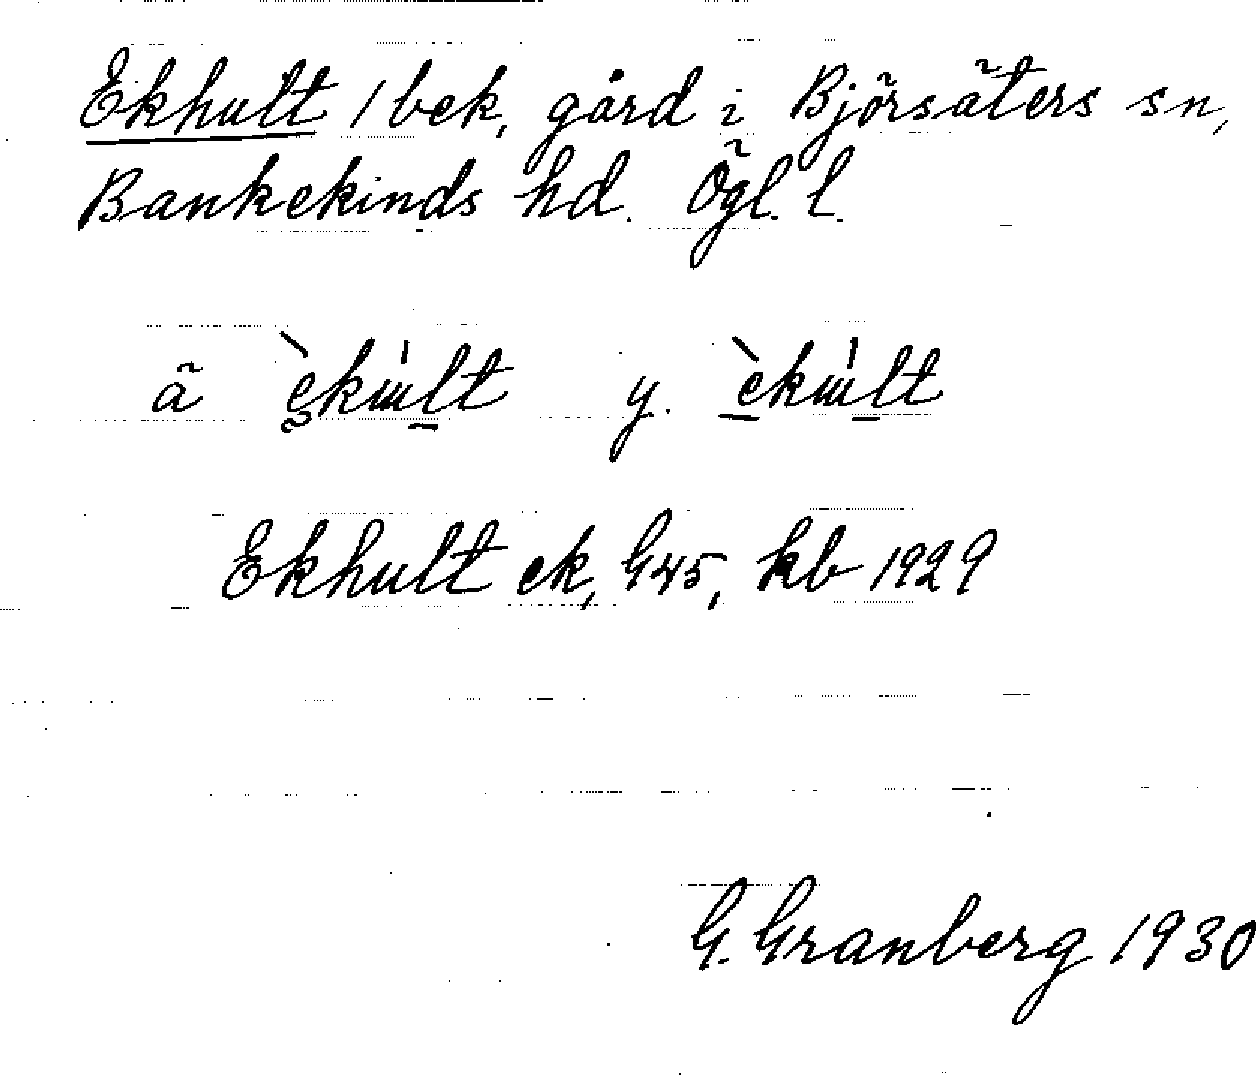 Ekhult / bek, gård i Björsäters sn,
Bankekinds hd. Ögl. l.
ä èkɯ́lt y. èkɯ́lt
Ekhult ek, G45, kb 1929
G. Granberg 1930